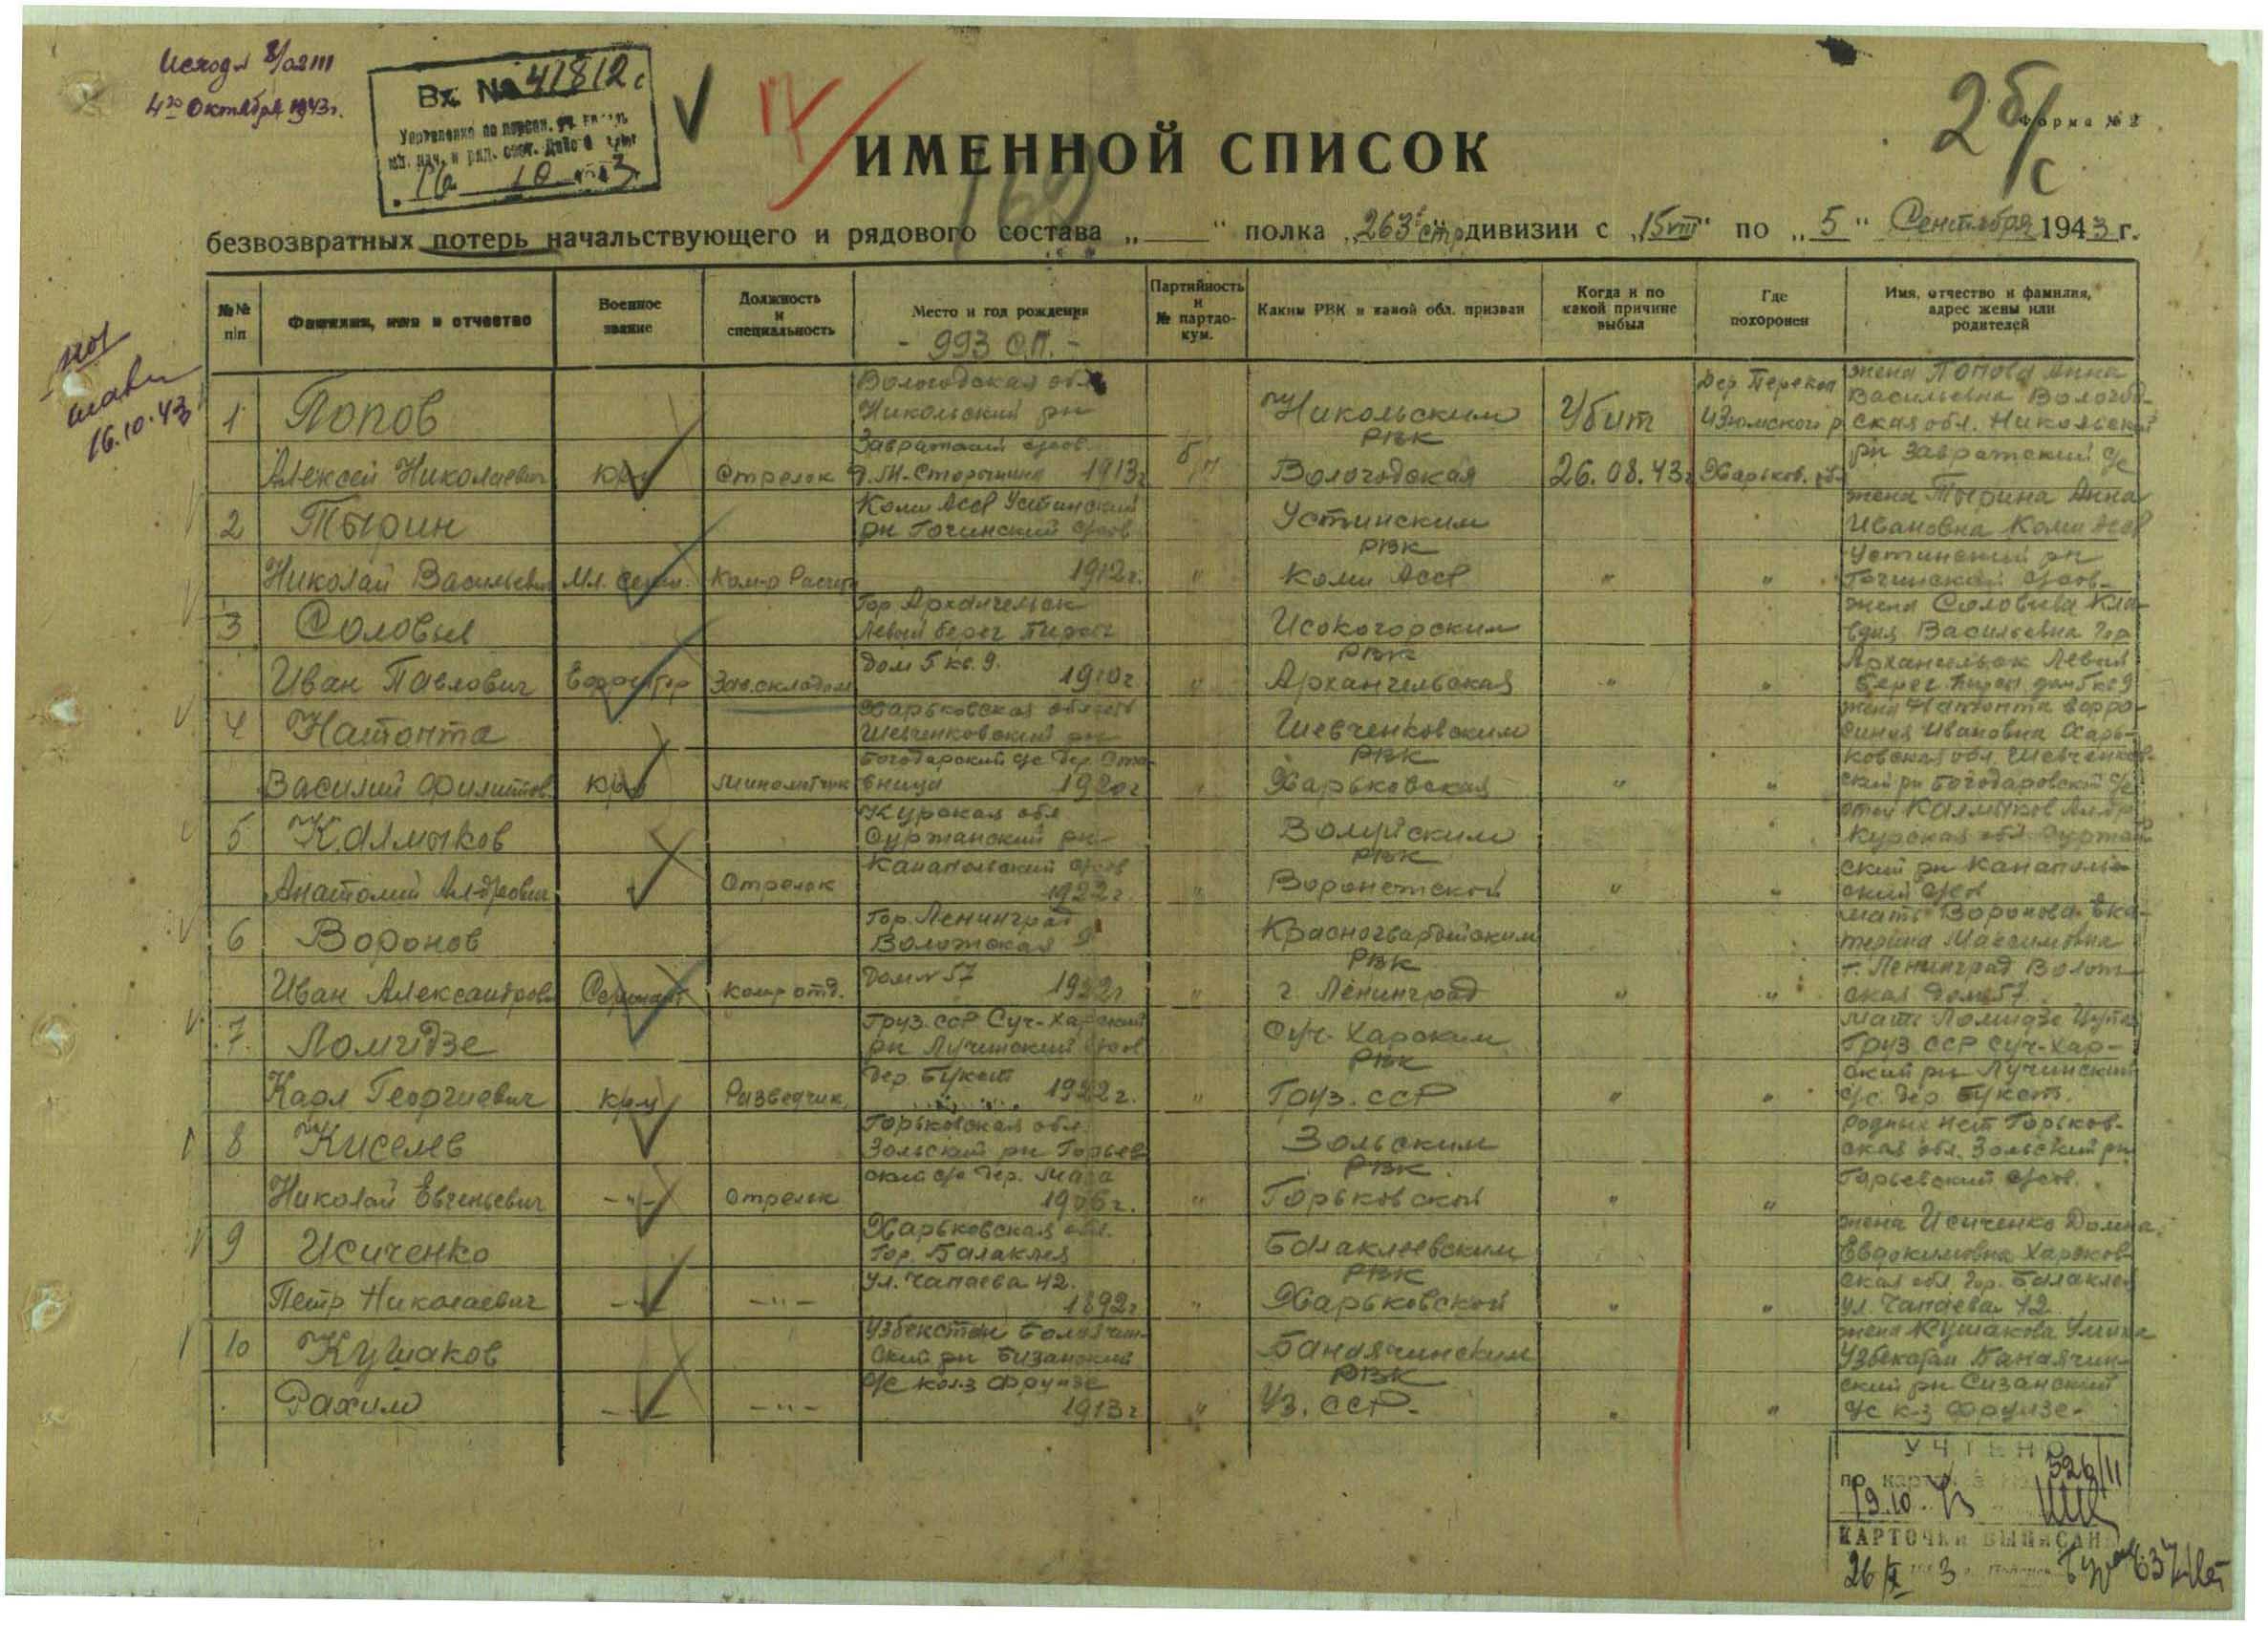 4го Октября 1943г.
Вх. № 41812с
16 10 43
2б/с
Форма № 2
ИМЕННОЙ СПИСОК
безвозвратных потерь начальствующего и рядового состава „ —— “ полка „263й стр дивизии с „15 VIII“ по „5“ Сентября 1943 г.
16.10.43
№№ п/п
Фамилия, имя и отчество
Военное звание
Должность и специальность
Место и год рождения
- 993 С.П. -
Партийность и № партдокум.
Каким РВК и какой обл. призван
Когда и по какой причине выбыл
Где похоронен
Имя, отчество и фамилия, адрес жены или родителей
1 Попов
Алексей Николаевич
кр-ц
Стрелок
Вологодская обл
Никольский рн
1913г
б/п
Никольским
РВК
Вологодская
Убит
26.08.43г
Дер. Перекоп
Изюмского р
Харьков. обл
жена Попова Анна
Васильевна Вологод-
ская обл. Никольский
рн Завратский с/с
2 Тырин
Николай Васильевич
Мл. серж.
Ком-р Расчета
Коми Асср Устинский
рн Гочинский с/сов
1912г.
"
Устинским
РВК
Коми Асср
"
"
жена Тырина Анна
Ивановна Коми Асср
Устинский рн
Гочинский с/сов-
3 Соловьев
Иван Павлович
Ефрейтор
Зав.складом
Гор Архангельск
Левый берег Пирсы
Дом 5 кв. 9. 1910г
"
Исокогорским
РВК
Архангельская
"
"
жена Соловьева Кла-
вдия Васильевна Гор
Архангельск Левый
берег Пирсы дом 5 кв 9
4 Натопта
Василий Филиппов.
кр-ц
Минометчик
Харьковская область
Шевченковский рн
1920г
"
Шевченковским
РВК
Харьковская
"
"
жена Натопта Ефро-
синия Ивановна Харь-
ковская обл. Шевченков-
ский рн Богодаровский с/с
5 Калмыков
Анатолий Андреевич
Стрелок
Курская обл
Суржанский рн-
Канапольский с/сов
1922г.
"
Волуйским
РВК
Воронежской
"
"
отец Калмыков Андр
Курская обл. Суржан
ский рн Канаполь-
ский с/сов
6 Воронов
Иван Александров
Сержант
Ком-р отд.
Гор. Ленинград
Воложская
Дом № 57 1922г
"
Красногвардейским
РВК
г. Ленинград
"
"
мать Воронова Ека-
терина Максимовна
г. Ленинград Волож-
ская Дом 57
7 Ломидзе
Карл Георгиевич
кр-ц
Разведчик
Груз. ССР Суч-Харский
рн Лучинский с/сов
дер. Букет 1922г.
"
Суч-Харским
РВК
Груз. ССР
"
"
мать Ломидзе
Груз ССР Суч-Хар-
ский рн Лучинский
с/с. дер. Букет.
8 Киселев
Николай Евгеньевич
-"-
Стрелок
Горьковская обл.
Зольский рн Горьев
1906г.
"
Зольским
РВК.
Горьковской
"
"
Родных нет Горьков-
ская обл. Зольский рн
Горьевский с/сов.
9 Исиченко
Петр Николаевич
-"-
-"-
Харьковская обл.
Гор. Балаклея
Ул. Чапаева 42.
1892г
"
Балаклеевским
РВК
Харьковской
"
"
жена Исиченко Домна
Евдокимовна Харьков-
ская обл. Гор. Балаклея
ул. Чапаева 42
10 Кушаков
Рахим
-"-
-"-
Узбекстан
ский рн Бизанский
с/с колз Фрунзе
1913г
"
Банаячинским
РВК
Уз. ССР.
"
"
жена Кушакова
Узбекстан Банаячин-
ский рн Сизанский
с/с к-з Фрунзе-
УЧТЕНО
19.10.43
КАРТОЧКИ ВЫПИСАН